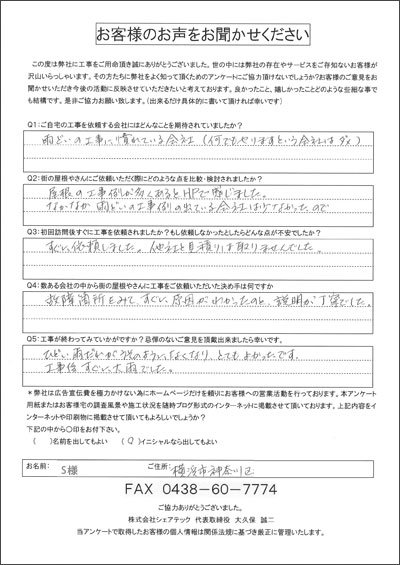 お客様のお声をお聞かせください
この度は弊社に工事をご用命頂き誠にありがとうございました。世の中には弊社の存在やサービスをご存知ないお客様が
沢山いらっしゃいます。その方たちに弊社をよく知って頂くためのアンケートにご協力頂けないでしょうか?お客様のご意見をお
聞かせいただき今後の活動に反映させていただきたいと考えております。良かったこと、嬉しかったことどのような些細な事で
も結構です。是非ご協力お願い致します。(出来るだけ具体的に書いて頂ければ幸いです)
Q1:ご自宅の工事を依頼する会社にはどんなことを期待されていましたか?
雨どいの工事に慣れている会社(何でもやりますという会社はダメ)
Q2:街の屋根やさんにご依頼いただく際にどのような点を比較・検討されましたか?
屋根の工事例が多くあるとHPで感じました。
なかなか雨どいの工事例の出ている会社は少なかったので
Q3:初回訪問後すぐに工事を依頼されましたか?もし依頼しなかったとしたらどんな点が不安でしたか?
すぐに依頼しました。他社と見積りは取りませんでした。
Q4:数ある会社の中から街の屋根やさんに工事をご依頼いただいた決め手は何ですか
故障箇所をみて、すぐに原因がわかったのと、説明が丁寧でした。
Q5:工事が終わってみていかがですか?忌憚のないご意見を頂戴出来ましたら幸いです。
ひどい雨だれがうそのようになくなり、とてもよかったです。
工事後すぐに大雨でした。
*弊社は広告宣伝費を極力かけない為にホームページだけを頼りにお客様への営業活動を行っております。本アンケート
用紙またはお客様宅の調査風景や施工状況を随時ブログ形式のインターネットに掲載させて頂いております。上記内容をイ
ンターネットや印刷物に掲載させて頂いてもよろしいでしょうか?
下記の中から〇印をお付下さい。
( )名前を出してもよい (〇)イニシャルなら出してもよい
お名前: S様 ご住所: 横浜市神奈川区
FAX 0438-60-7774
ご協力ありがとうございました。
株式会社シェアテック 代表取締役 大久保 誠二
当アンケートで取得したお客様の個人情報は関係法規に基づき厳正に管理いたします。